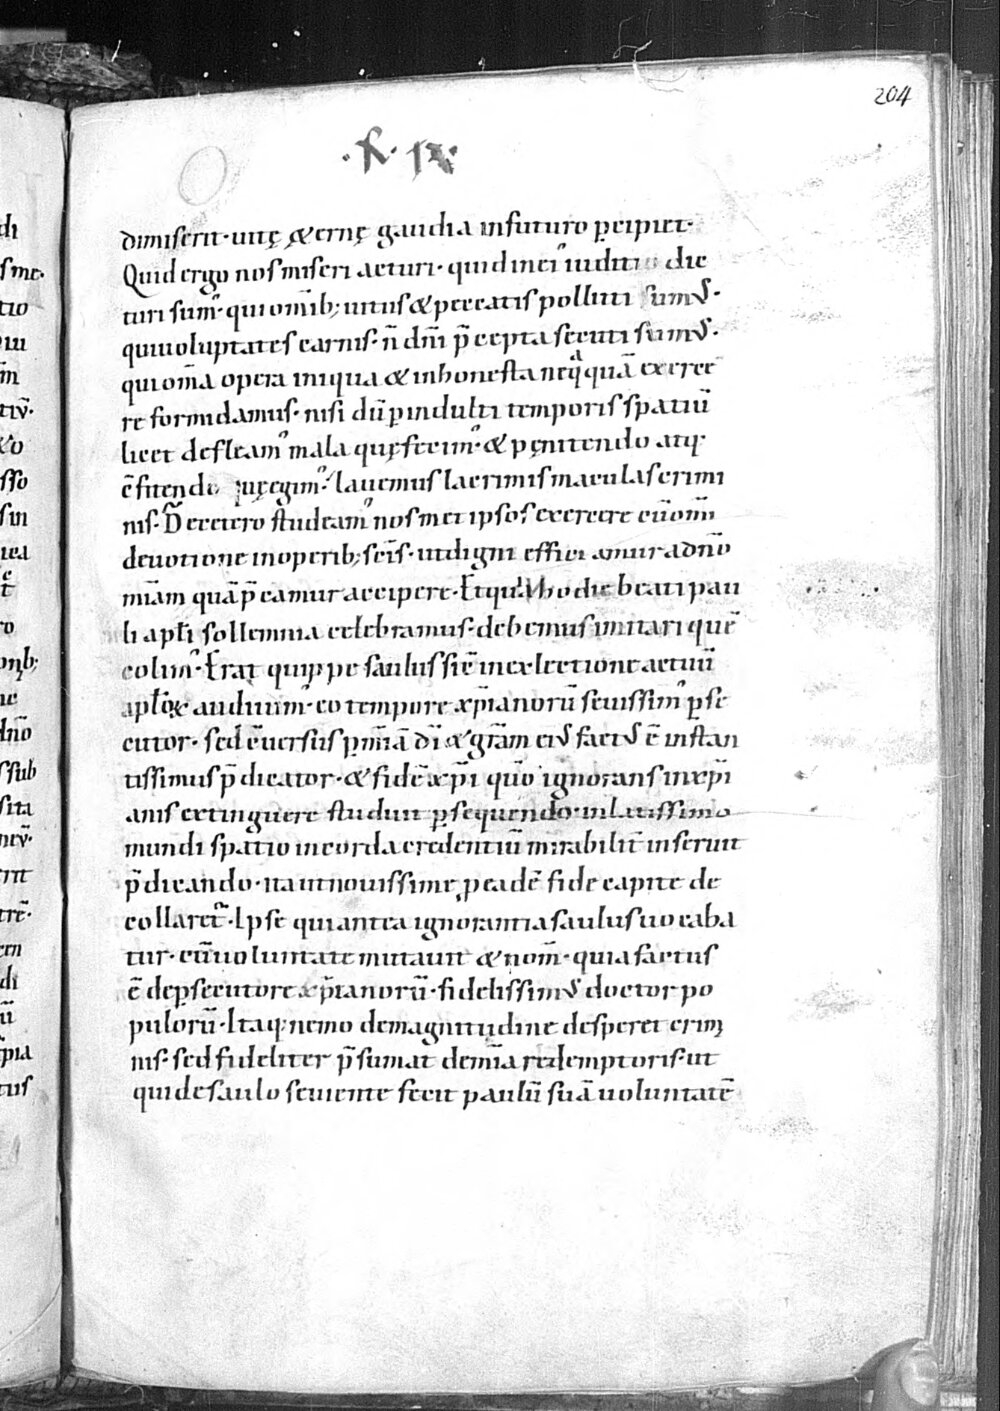 204
dimiserit· uitę & ernę gaudia in futuro p̄cipiet·
Quid ergo nos miseri acturi· quid inei᾽ iuditio die
turi sum᾽· qui om̄ib; uitiis & peccatis polluti sumꝰ·
qui uoluptates carnis· n̄ dn̄i p̄cepta secuti sumꝰ·
qui om̄a opera iniqua & inhonesta neq̄quā exerce
re formidamus· nisi dū p̄ indulti temporis spatiū
licet defleam᾽ mala quę fecim᾽· & pęnitendo atq·
ɔ̄fitendo quę egim᾽· lauemus lacrimis maculas crimi
nis· D̄e cetero studeam᾽ nosmet ipsos exercere cū om̄i
deuotione in operib; sc̄is· ut digni effici amur ad n̄o
mīam quā p̄camur accipere· Et quia hodie beati pau
li apl̄i sollemnia celebramus· debemus imitari quē
colim᾽· Erat quippe saulus sic̄ in ex lectione actuū
apl̄oꝝ audiuim᾽· eo tempore xp̄ianorū seuissim᾽ p̄se
cutor· sed ɔ̄uersus p̄ mīā dī & gr̄am eiꝰ factꝰ ē instan
tissimus p̄dicator· & fidē xp̄i quō ignorans in xp̄i
anis extinguere studuit p̄sequendo· in latissimo
mundi spatio in corda credentiū mirabilit̄ inseruit
p̄dicando· ita ut nouissime p̄ eadē fide capite de
collaret᾽· Ipse qui antea ignorantia saulus uocaba
tur· cū uoluntate mutauit & nom̄· quia factus
ē de p̄secutore xp̄ianorū· fidelissimꝰ doctor po
pulorū· Itaq· nemo de magnitudine desperet crim̄
nis· sed fideliter p̄sumat de mīa redemptoris· ut
qui de saulo seuiente fecit paulū suā uoluntatē